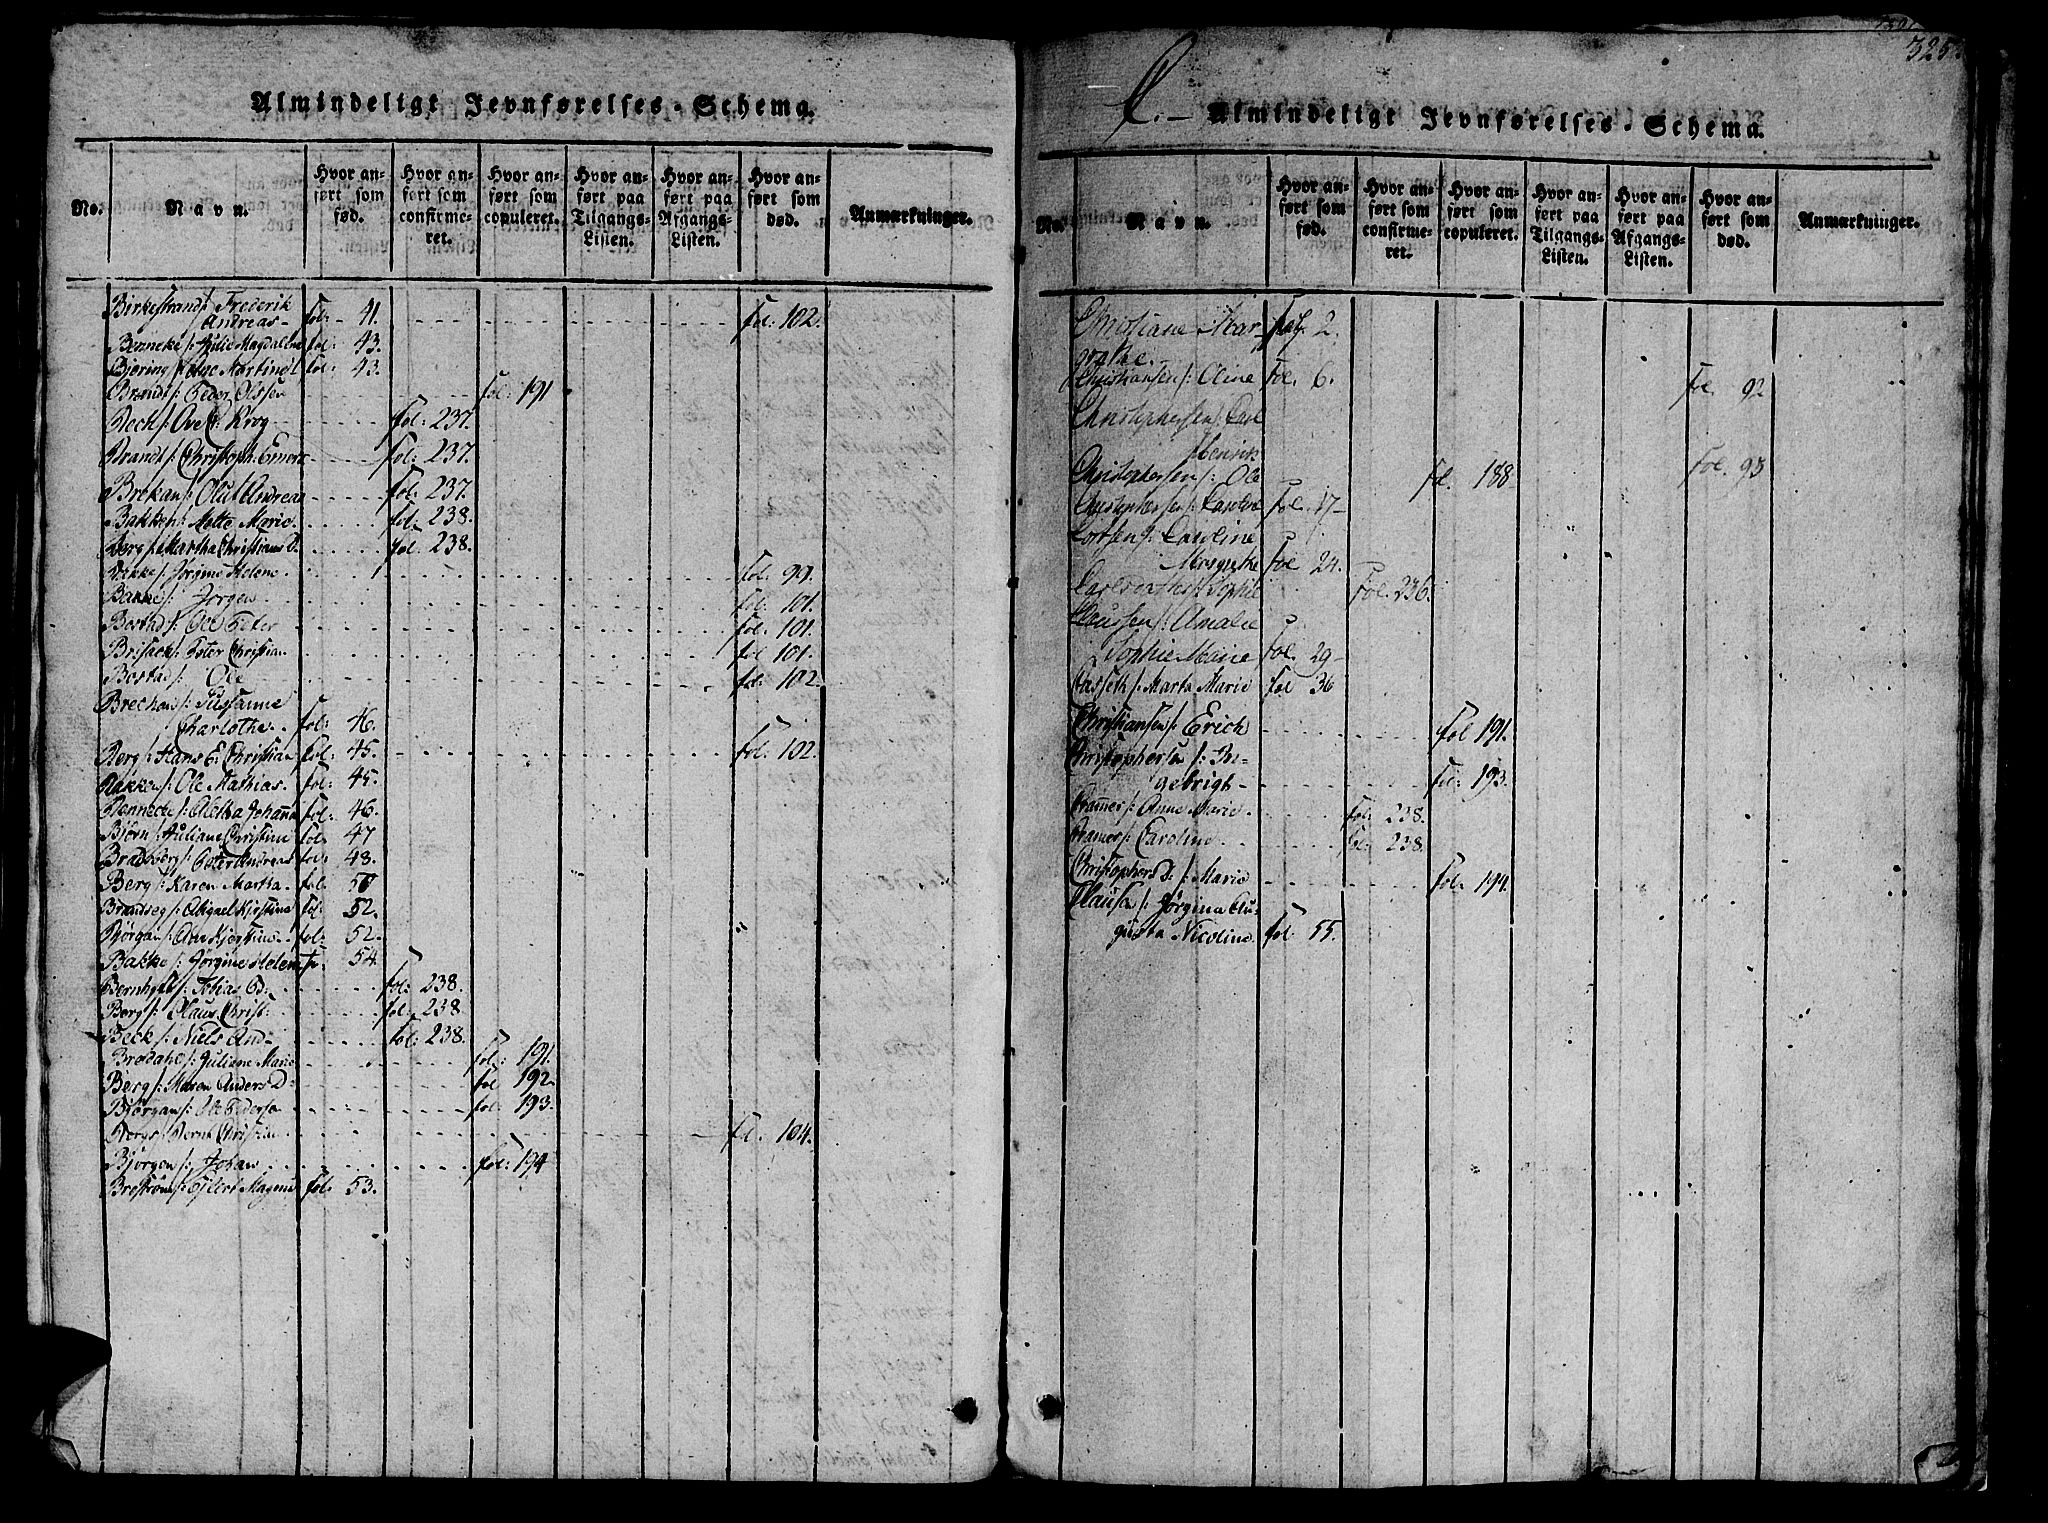 Almindeligt Jevnførelses-Schema.
No.
Navn.
Hvor anført som fød.
Hvor anført som confirmeret.
Hvor anført som copuleret.
Hvor anført paa Tilgangs-Listen.
Hvor anført paa Afgangs-Listen.
Hvor anført som død.
Anmærkninger.
Birkestrand /: Frederik
Andreas - fol: 41. fol: 102.
Benneke /: Julie Magdalene fol: 43.
Bjøring /: fol: 43.
Brandt /: Peder Olssen fol: 191
Bech /: Ove C: Krog fol: 237.
Brandt /: Christoph: fol: 237.
Brekan /: Oluf Andreas fol: 237.
Bakken /: Mette Marie fol: 238.
Berg /: Martha Christians D. fol: 238.
Bakke /: Jørgine Helene fol: 99.
Bakke /: Jørgen fol: 101.
Bostad /: Ole Peter fol: 101.
Brisach /: Peter Christian fol: 101.
Bostad /: Ole fol: 102.
Brechan /: Susanne
Charlothe. fol: 46.
Berg /: Hans E: Christian fol: 45. fol: 102.
Bakken /: Ole Mathias fol: 45.
Bennecke /: Aletha Johanna fol: 46.
Bjørn /: Juliane Christine fol: 47
Bradsberg /: Peter Andreas fol: 48.
Berg /: Karen Martha. fol: 50
Brandseg /: Abigael Kjerstine fol: 52.
Bjørgan /: Ane Kjerstine fol: 52.
Bakke /: Jørgine Helene f. 54.
Bernhoft /: Tobias B: fol: 238.
Berg /: Claus Christ: fol: 238
Beck /: Niels And: fol: 238.
Brodahl /: Juliane Marie fol: 191.
Berg /: Maren Anders D: fol 192.
Bjørgan /: Ole Pedersen fol: 193.
Berg /: Bernt Christian fol: 104.
Bjørgen /: Johan fol: 194
Brestrøm /: Eilert Magnus fol: 53.
325
C. - Almindeligt Jevnførelses-Schema.
No.
Navn.
Hvor anført som fød.
Hvor anført som confirmeret.
Hvor anført som copuleret.
Hvor anført paa Tilgangs-Listen.
Hvor anført paa Afgangs-Listen.
Hvor anført som død.
Anmærkninger.
Christiane Mar- fol. 2.
grethe.
Christiansen /: Oline Fol. 6. Fol. 92
Christophersen /: Carl
Henrik Fol. 93
Christophersen /: Ole Fol. 188
Christophersen /: Caroline Fol. 17-
Coldsen /: Caroline
Margrethe Fol 24.
Sophie Fol. 236.
Claussen /: Amalie
Sophie Marie Fol. 29-
Casseth /: Marta Marie fol 36
Christiansen /: Erich fol 191.
Christophersen /: In-
gebrigt fol: 193.
Cramer /: Anne Marie fol: 238.
Cramer /: Caroline fol: 238.
Christophers D. /: Marie fol: 194.
Clausen /: Jørgina Au-
gusta Nicoline fol: 55.